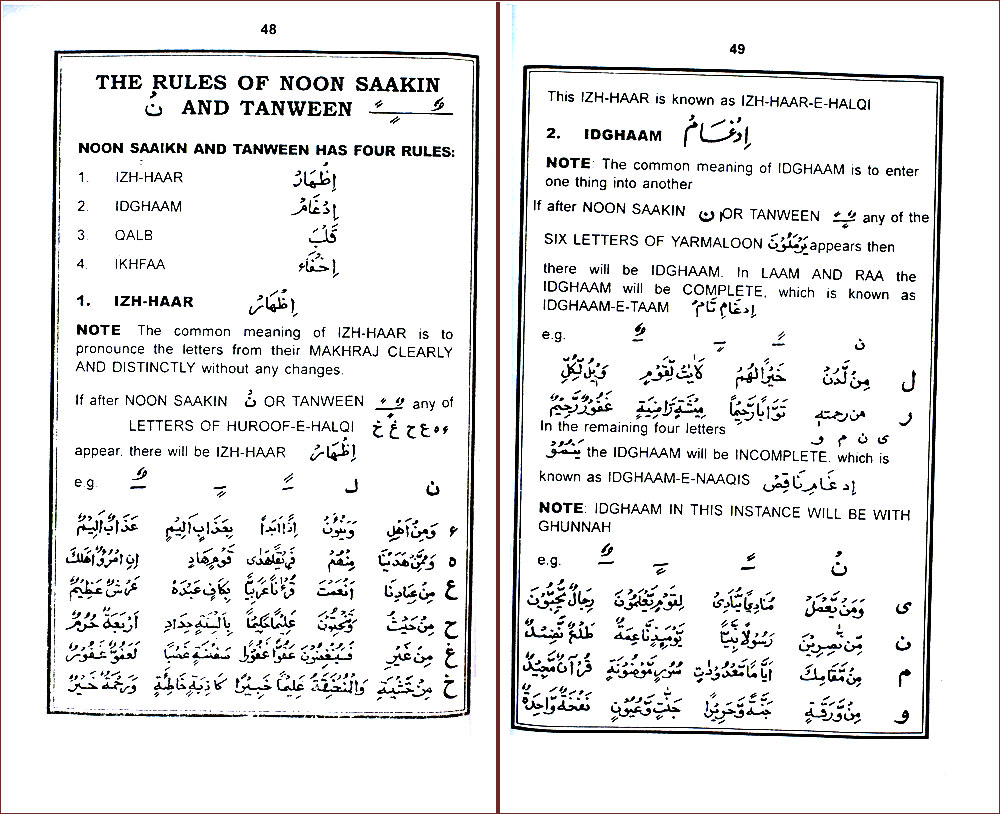 48
THE RULES OF NOON SAAKIN
نْ AND TANWEEN ـًـ ـٍـ ـٌـ
NOON SAAIKN AND TANWEEN HAS FOUR RULES:
1. IZH-HAAR اِظْهَارْ
2. IDGHAAM اِدْغَامْ
3. QALB قَلْبْ
4. IKHFAA اِخْفَاء
1. IZH-HAAR اِظْهَارْ
NOTE The common meaning of IZH-HAAR is to
pronounce the letters from their MAKHRAJ CLEARLY
AND DISTINCTLY without any changes.
If after NOON SAAKIN نْ OR TANWEEN any of
LETTERS OF HUROOF-E-HALQI ء ه ع ح غ خ
appear, there will be IZH-HAAR اِظْهَارْ
e.g.
ء وَمِنْ اَهْلِ اِذًا اَبَدًا بِعَذَابٍ اَلِيْمٍ عَذَابٌ اَلِيْمٌ
ه مِنْهُمْ قَوْمٍ هَادٍ
ع مِنْ عِبَادِنَا اَنْعَمْتَ قُرْاٰنًا عَرَبِيًّا بِكَافٍ عَبْدَهٗ عَرْشٌ عَظِيْمٌ
ح مِنْ حَيْثُ عَلِيْمًا حَكِيْمًا بِاَلْسِنَةٍ حِدَادٍ اَرْبَعَةٌ حُرُمٌ
غ مِنْ غَيْرِ فَسَيُنْغِضُوْنَ عَفُوًّا غَفُوْرًا لَعَفُوٌّ غَفُوْرٌ
خ مِنْ خَشْيَةِ وَالْمُنْخَنِقَةُ عَلِيْمًا خَبِيْرًا كَاذِبَةٍ خَاطِئَةٍ
49
This IZH-HAAR is known as IZH-HAAR-E-HALQI
2. IDGHAAM اِدْغَامْ
NOTE: The common meaning of IDGHAAM is to enter
one thing into another
If after NOON SAAKIN ن OR TANWEEN any of the
SIX LETTERS OF YARMALOON يَرْمَلُوْنَ appears then
there will be IDGHAAM. In LAAM AND RAA the
IDGHAAM will be COMPLETE, which is known as
IDGHAAM-E-TAAM اِدغَامِ تَامْ
e.g. ن
ل مِنْ لَّدُنْ خَيْرًا لَّهُمْ لَاٰيٰتٍ لِّقَوْمٍ وَيْلٌ لِّكُلِّ
ر من رحمته تَوَّابًا رَّحِيْمًا عِيْشَةٍ رَّاضِيَةٍ غَفُوْرٌ رَّحِيْمٌ
In the remaining four letters ى ن م و
يَنْمُوْ the IDGHAAM will be INCOMPLETE, which is
known as IDGHAAM-E-NAAQIS اِدغَامِ نَاقِصْ
NOTE: IDGHAAM IN THIS INSTANCE WILL BE WITH
GHUNNAH
e.g. نْ
ى وَمَنْ يَّعْمَلْ مُنَادِيًا يُّنَادِىْ لِقَوْمٍ يَّعْلَمُوْنَ رِجَالٌ يُّحِبُّوْنَ
ن مِّنْ نّٰصِرِيْنَ رَسُوْلًا نَّبِيًّا يَوْمَئِذٍ نَّاعِمَةٌ طَلْعٌ نَّضِيْدٌ
م مِنْ مَّقَامِكَ اَيَّامًا مَّعْدُوْدَاتٍ سُرُرٍ مَّوْضُوْنَةٍ قُرْاٰنٌ مَّجِيْدٌ
و مِنْ وَّرَقَةٍ جَنَّةً وَّحَرِيْرًا جَنّٰتٍ وَّعُيُوْنٍ نَفْخَةٌ وَّاحِدَةٌ